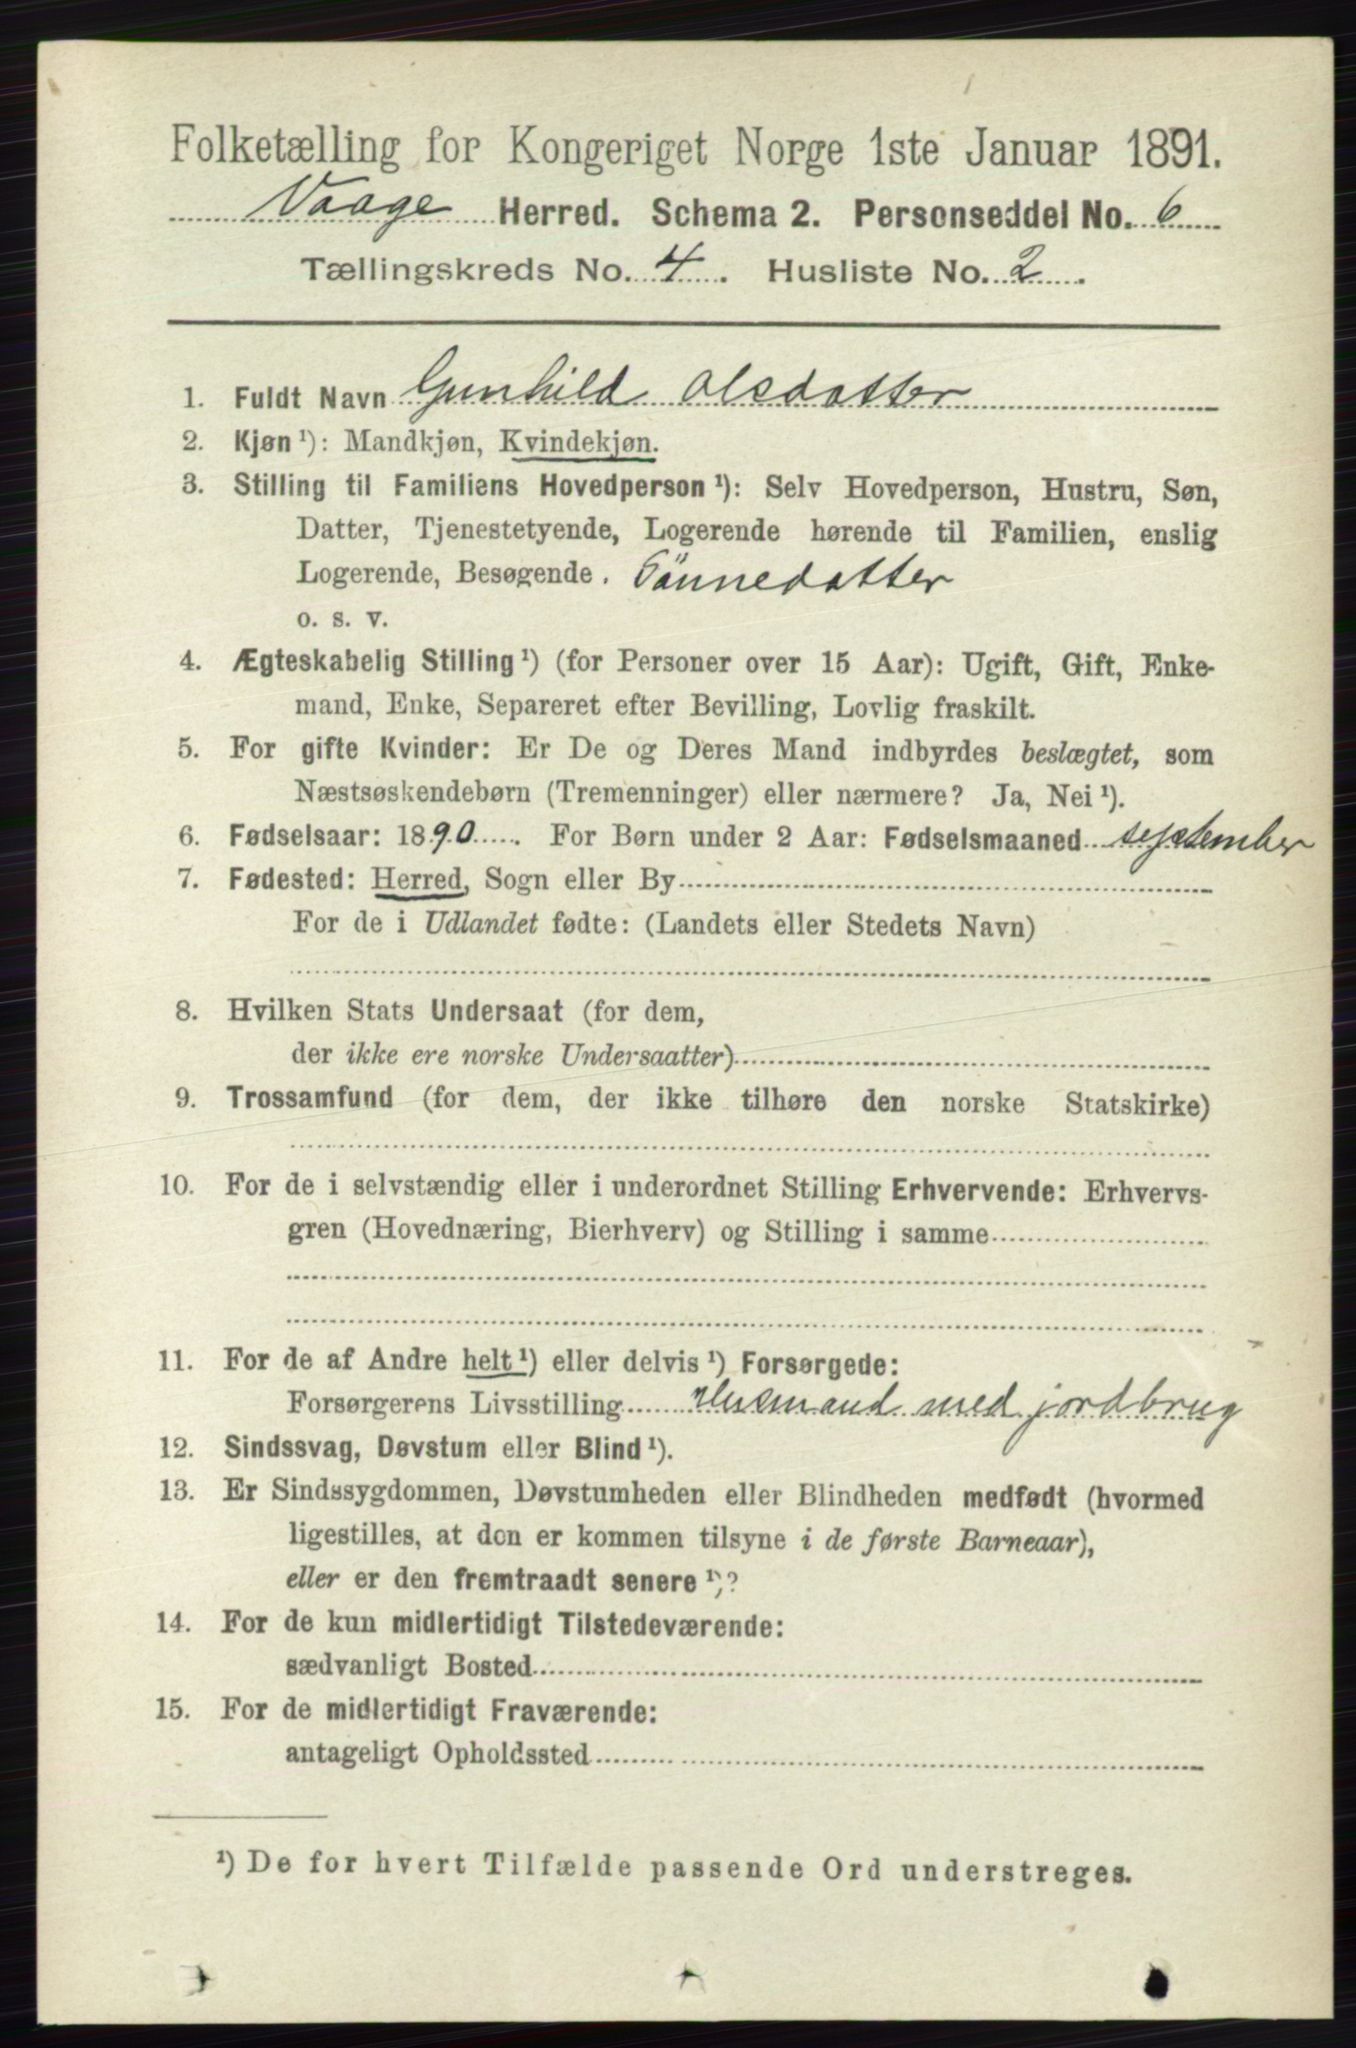 Folketælling for Kongeriget Norge 1ste Januar 1891.
Vaage Herred. Schema 2. Personseddel No. 6
Tællingskreds No. 4. Husliste No. 2.
1. Fuldt Navn Gunhild Olsdatter
2. Kjøn ¹): Mandkjøn, Kvindekjøn.
3. Stilling til Familiens Hovedperson ¹): Selv Hovedperson, Hustru, Søn,
Datter, Tjenestetyende, Logerende hørende til Familien, enslig
Logerende, Besøgende. Sönnedatter
o. s. v.
4. Ægteskabelig Stilling ¹) (for Personer over 15 Aar): Ugift, Gift, Enke-
mand, Enke, Separeret efter Bevilling, Lovlig fraskilt.
5. For gifte Kvinder: Er De og Deres Mand indbyrdes beslægtet, som
Næstsøskendebørn (Tremenninger) eller nærmere? Ja, Nei ¹).
6. Fødselsaar: 1890. For Børn under 2 Aar: Fødselsmaaned september
7. Fødested: Herred, Sogn eller By
For de i Udlandet fødte: (Landets eller Stedets Navn)
8. Hvilken Stats Undersaat (for dem,
der ikke ere norske Undersaatter)
9. Trossamfund (for dem, der ikke tilhøre den norske Statskirke)
10. For de i selvstændig eller i underordnet Stilling Erhvervende: Erhvervs-
gren (Hovednæring, Bierhverv) og Stilling i samme
11. For de af Andre helt ¹) eller delvis ¹) Forsørgede:
Forsørgerens Livsstilling Husmand med jordbrug
12. Sindssvag, Døvstum eller Blind ¹).
13. Er Sindssygdommen, Døvstumheden eller Blindheden medfødt (hvormed
ligestilles, at den er kommen tilsyne i de første Barneaar),
eller er den fremtraadt senere ¹)?
14. For de kun midlertidigt Tilstedeværende:
sædvanligt Bosted
15. For de midlertidigt Fraværende:
antageligt Opholdssted
¹) De for hvert Tilfælde passende Ord understreges.